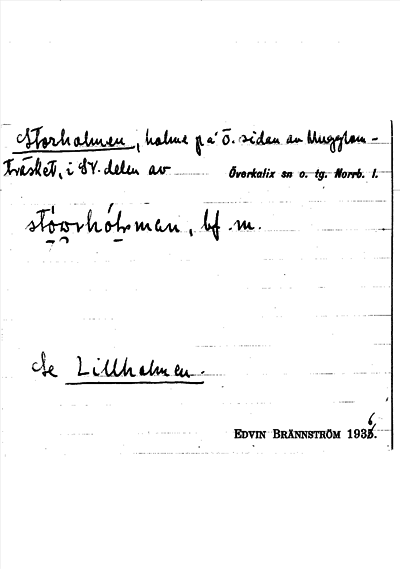 Storholmen, holme på ö. sidan av Mugglan-
träsket, i SV. delen av Överkalix sn o. tg. Norrb. l.
bf. m.
Se Lillholmen.
EDVIN BRÄNNSTRÖM 1936.